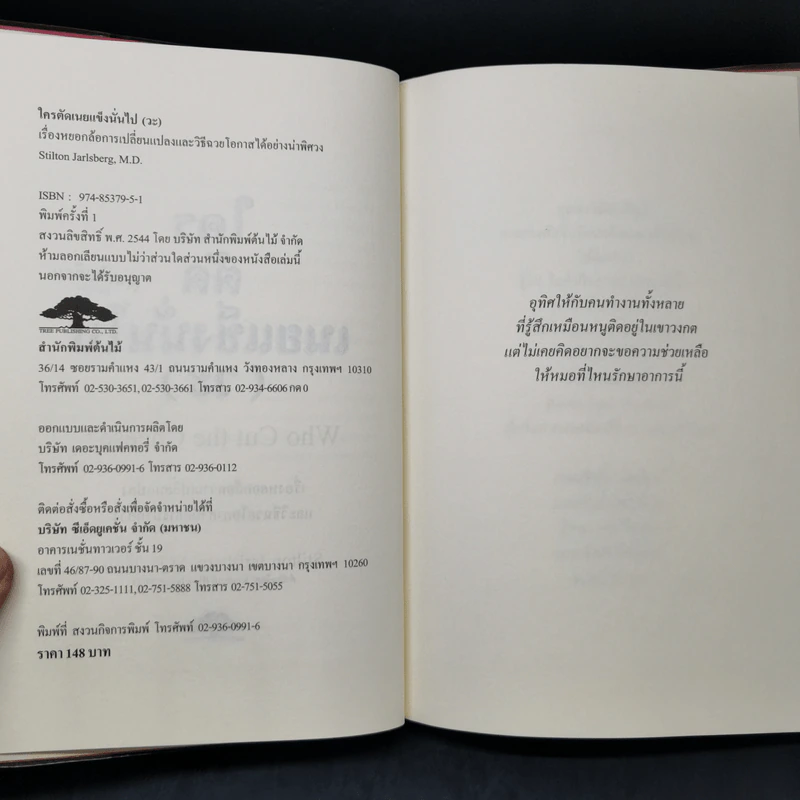 ใครตัดเนยแข็งนั่นไป (วะ)
เรื่องหยอกล้อการเปลี่ยนแปลงและวิธีฉวยโอกาสได้อย่างน่าพิศวง
Stilton Jarlsberg, M.D.
ISBN : 974-85379-5-1
พิมพ์ครั้งที่ 1
สงวนลิขสิทธิ์ พ.ศ. 2544 โดย บริษัท สำนักพิมพ์ต้นไม้ จำกัด
ห้ามลอกเลียนแบบไม่ว่าส่วนใดส่วนหนึ่งของหนังสือเล่มนี้
นอกจากจะได้รับอนุญาต
TREE PUBLISHING CO., LTD.
สำนักพิมพ์ต้นไม้
36/14 ซอยรามคำแหง 43/1 ถนนรามคำแหง วังทองหลาง กรุงเทพฯ 10310
โทรศัพท์ 02-530-3651, 02-530-3661 โทรสาร 02-934-6606 กด 0
ออกแบบและดำเนินการผลิตโดย
บริษัท เดอะบุคแฟคทอรี่ จำกัด
โทรศัพท์ 02-936-0991-6 โทรสาร 02-936-0112
ติดต่อสั่งซื้อหรือสั่งเพื่อจัดจำหน่ายได้ที่
บริษัท ซีเอ็ดยูเคชั่น จำกัด (มหาชน)
อาคารเนชั่นทาวเวอร์ ชั้น 19
เลขที่ 46/87-90 ถนนบางนา-ตราด แขวงบางนา เขตบางนา กรุงเทพฯ 10260
โทรศัพท์ 02-325-1111, 02-751-5888 โทรสาร 02-751-5055
พิมพ์ที่ สงวนกิจการพิมพ์ โทรศัพท์ 02-936-0991-6
ราคา 148 บาท
อุทิศให้กับคนทำงานทั้งหลาย
ที่รู้สึกเหมือนหนูติดอยู่ในเขาวงกต
แต่ไม่เคยคิดอยากจะขอความช่วยเหลือ
ให้หมอที่ไหนรักษาอาการนี้